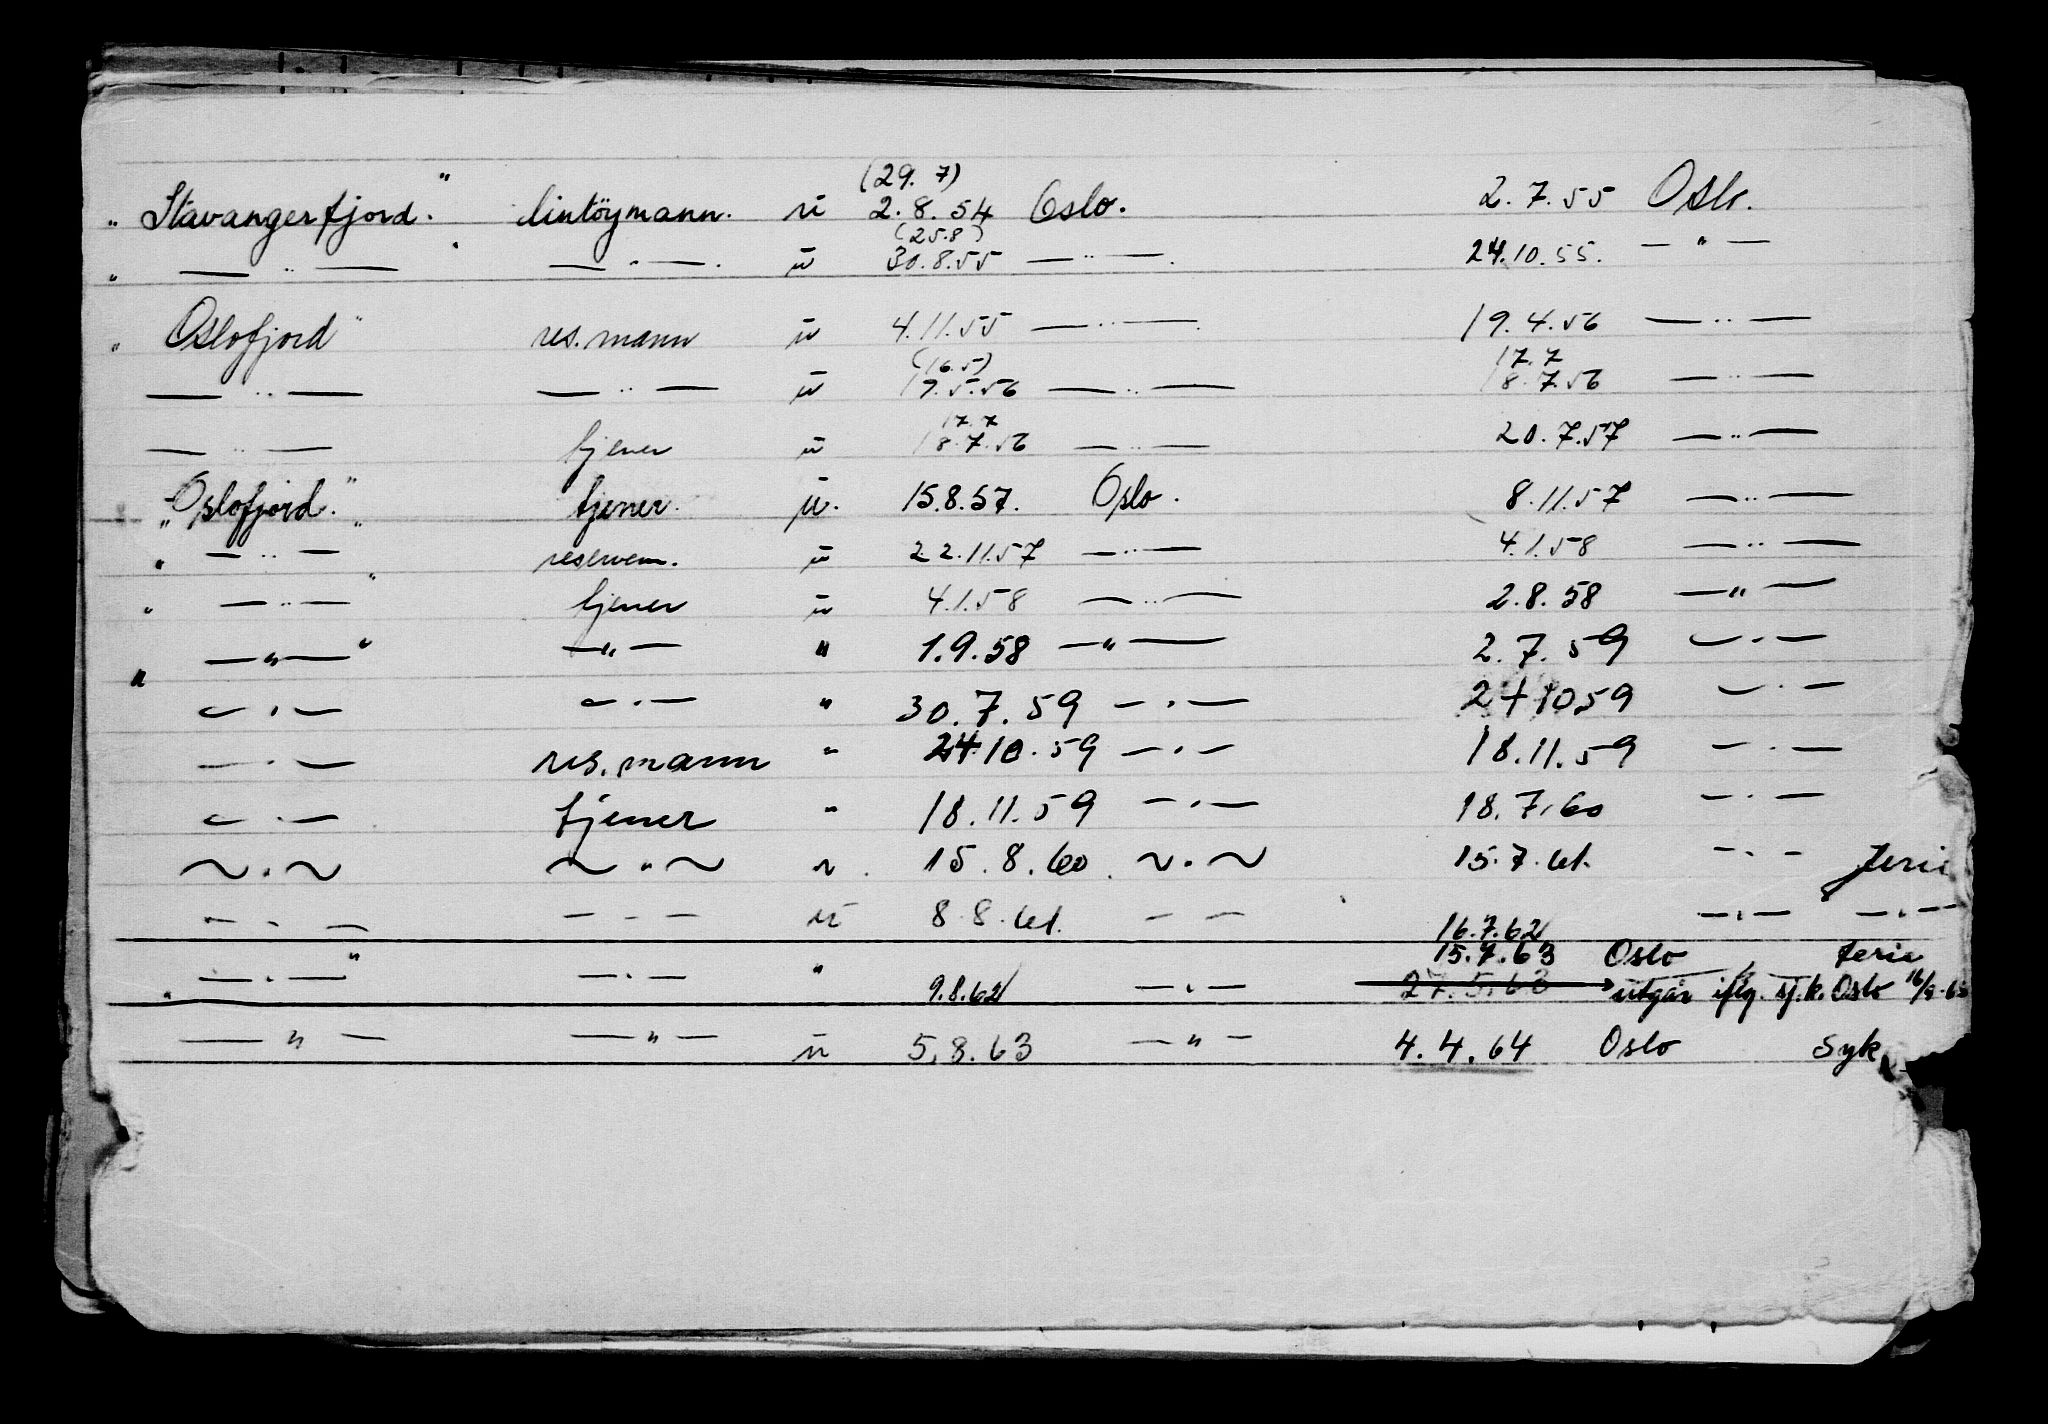 (29. 7)
„ Stavangerfjord." lintöymann. ü 2. 8. 54 Oslo. 2. 7. 55 Oslo.
(25.8)
" — " — " — " — . ü 30. 8. 55 — " — . 24. 10. 55. — " —
" Oslofjord" res. mann ü 4. 11. 55 — " — 19. 4. 56 — " —
(16.5) 17. 7
— " — — " — ü 19. 5. 56 — " — 18. 7. 56 — " —
17. 7
— " — tjener ü 18. 7. 56 — " — 20. 7. 57 — " —
„ Oslofjord." tjener. ü. 15. 8. 57. Oslo. 8. 11. 57 — " —
" — " — " reservem. ü 22. 11. 57 — " — 4. 1. 58 — " —
" — " — " tjener ü 4. 1. 58 — " — 2. 8. 58 — " —
" — " — " — " — " 1. 9. 58 — " — 2. 7. 59 — " —
— " — — " — " 30. 7. 59 — " — 24 10 59 — " —
— " — res. mann " 24 10. 59 — " — 18. 11. 59 — " —
— " — tjener " 18. 11. 59 — " — 18. 7. 60 — " —
— " — — " — " 15. 8. 60. — " — 15. 7. 61. — " — ferie
— " — — " — ü 8. 8. 61. — — 16. 7. 62 — " — — " —
15. 7. 63 Oslo ferie
" — " — " — " — " 9. 8. 62 — " — 27. 5. 63 utgår iflg. sj. k. Oslo
— " — — " — ü 5. 8. 63 — " — 4. 4. 64 Oslo Syk